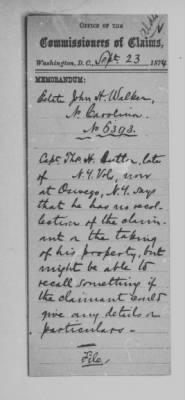 OFFICE OF THE
Commissioners of Claims,
Washington, D. C., Sept. 23 1874
MEMORANDUM:
Estate John H. Walker,
N. Carolina.
No 6393.
Capt. Thos. H. Butler, late
of N.Y. Vol, now
at Oswego, N.Y. says
that he has no recol-
lection of the claim-
ant or the taking
of his property, but
might be able to
recall something if
the claimant could
give any details or
particulars.
File